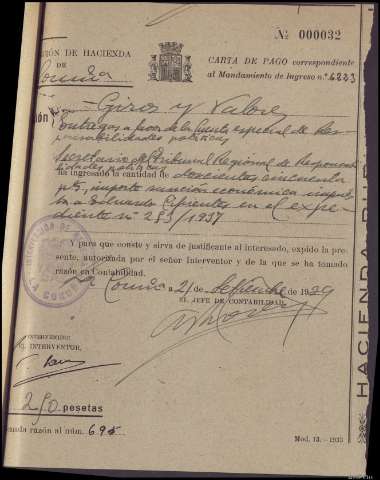 Nº 000032
IÓN DE HACIENDA
DE
Coruña
CARTA DE PAGO correspondiente
al Mandamiento de Ingreso n.º 6223
Giros y Valores
Entregas a favor de la Cuenta especial de Res-
ponsabilidades políticas
Secretario del Tribunal Regional de Responsa-
bilidades políticas
ha ingresado la cantidad de doscientas cincuenta
pts, importe sanción económica impues-
ta a Cifuentes en el expe-
diente nº 293/1937
Y para que conste y sirva de justificante al interesado, expido la pre-
sente, autorizada por el señor Interventor y de la que se ha tomado
razón en Contabilidad.
La Coruña a 21 de Septiembre de 1939
EL JEFE DE CONTABILIDAD,
INTERVENIDO:
EL INTERVENTOR,
250 pesetas
razón al núm. 695
Mod. 13.-1935
HACIENDA PÚB